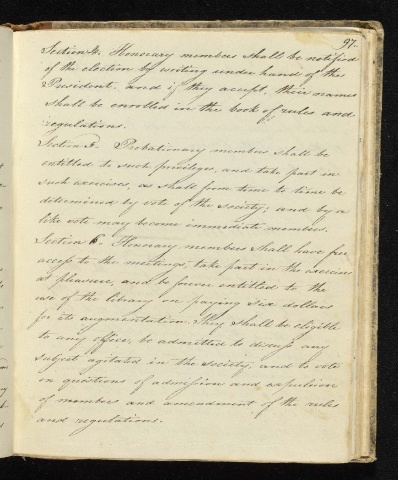 97.
Section 4. Honorary members shall be notified
of the election by writing under hand of the
President, and if they accept, their names
shall be enrolled in the book of rules and
regulations.
Section 5. Probationary members shall be
entitled to such privileges, and take part in
such exercises, as shall from time to time be
determined by vote of the society; and by a
like vote may become immediate members.
Section 6. Honorary members shall have free
access to the meetings, take part in the exercises
at pleasure, and be forever entitled to the
use of the library on paying six dollars
for its augmentation. They shall be eligible
to any office, be admitted to discuss any
subject agitated in the society, and to vote
in questions of admission and expulsion
of members and amendment of the rules
and regulations.